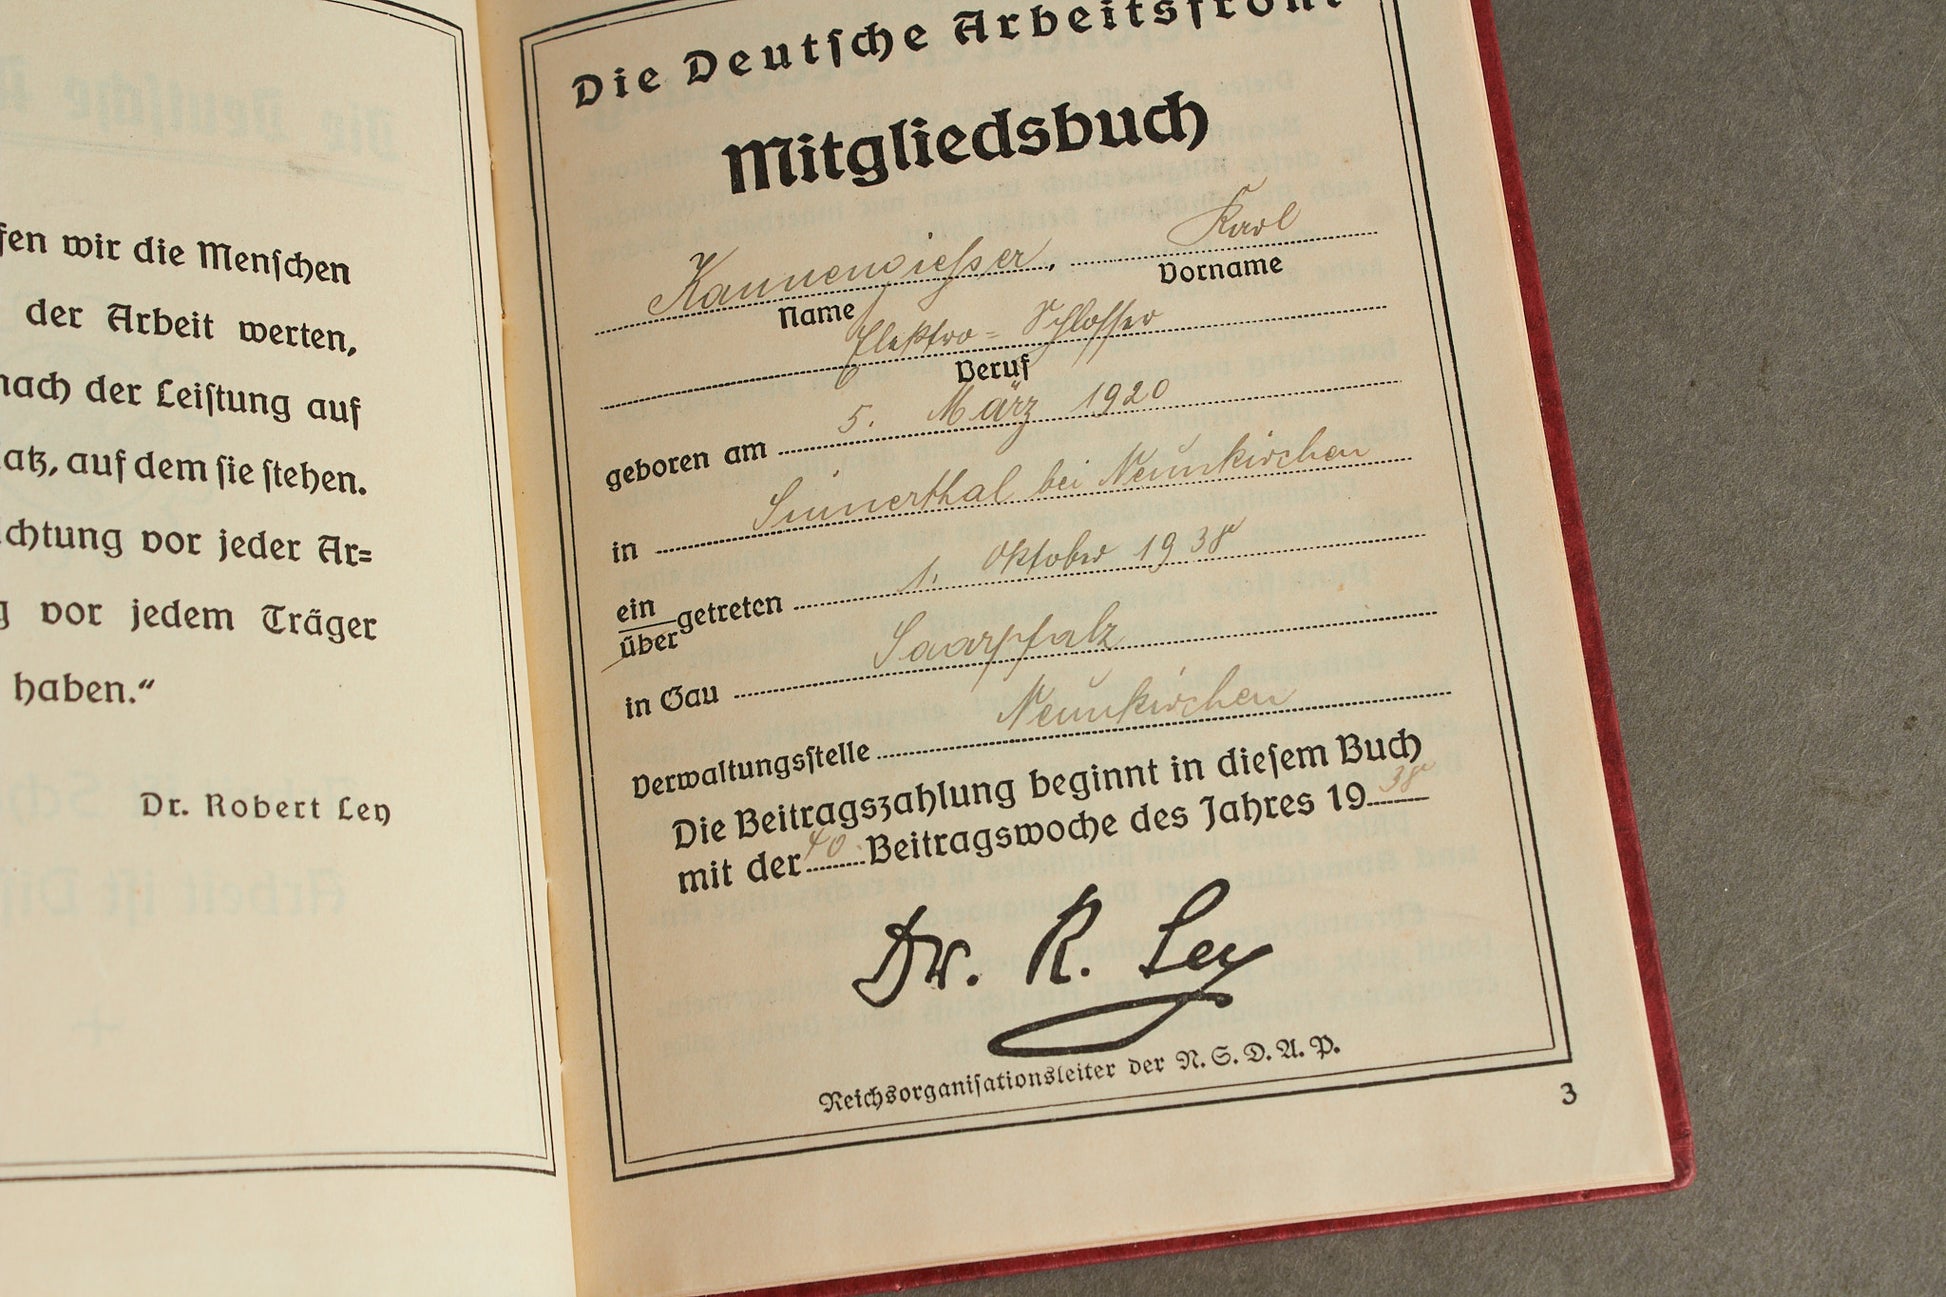 fen wir die Menschen
der Arbeit werten,
nach der Leistung auf
atz, auf dem sie stehen.
chtung vor jeder Ar=
g vor jedem Träger
haben.“
Dr. Robert Ley
Die Deutsche Arbeitsfront
Mitgliedsbuch
Kannengießer, Karl
Name Vorname
Elektro= Schlosser
Beruf
geboren am 5. März 1920
in Sinnerthal bei Neunkirchen
ein
über getreten 1. Oktober 1938
in Gau Saarpfalz
Verwaltungsstelle Neunkirchen
Die Beitragszahlung beginnt in diesem Buch
mit der 40. Beitragswoche des Jahres 1938
Dr. R. Ley
Reichsorganisationsleiter der N.S.D.A.P.
3